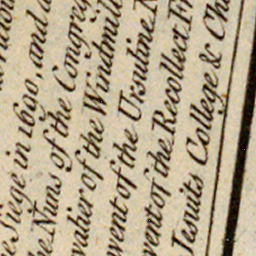 e Siege in 1690, and
he Nuns of the Congreg
valier of the Windmill
vent of the Ursuline N
vent of the Recollect Fr
Jesuits College & Ch